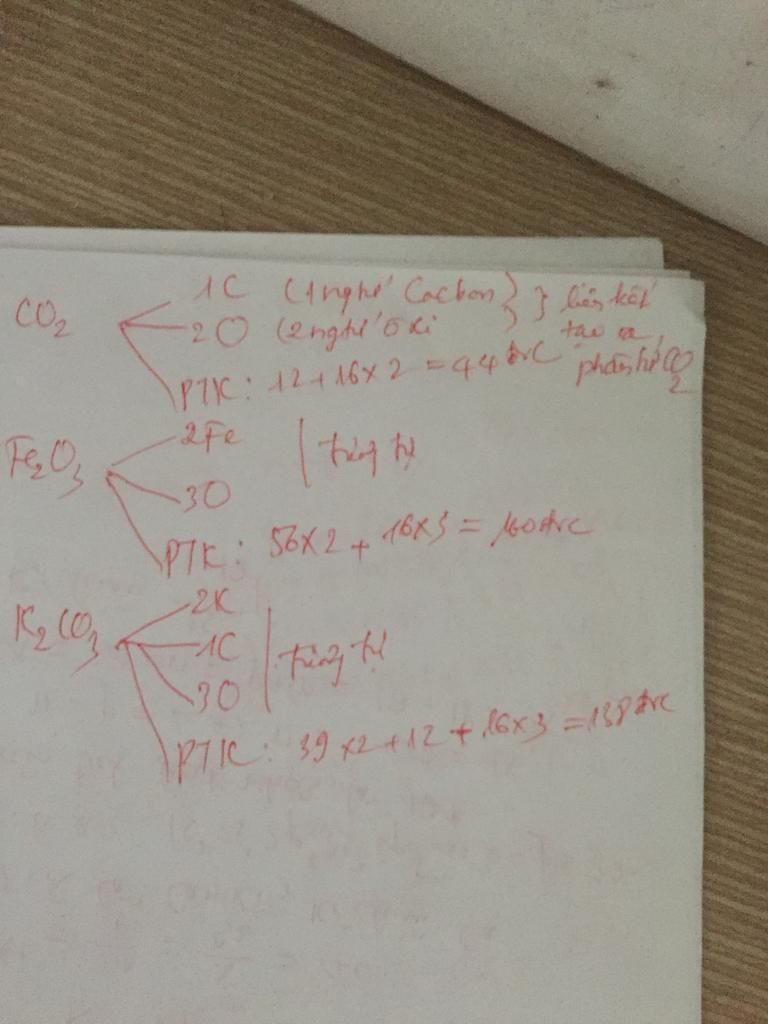 CO₂
1C (1 nghtử Cacbon)
2O (2 nghtử Oxi
} liên kết
tạo ra
phân tử CO₂
PTK: 12+16×2 = 44 đvC
Fe₂O₃
2Fe
3O
tương tự
PTK: 56×2 + 16×3 = 160 đvC
K₂CO₃
2K
1C
3O
tương tự
PTK: 39×2+12+16×3 = 138 đvC